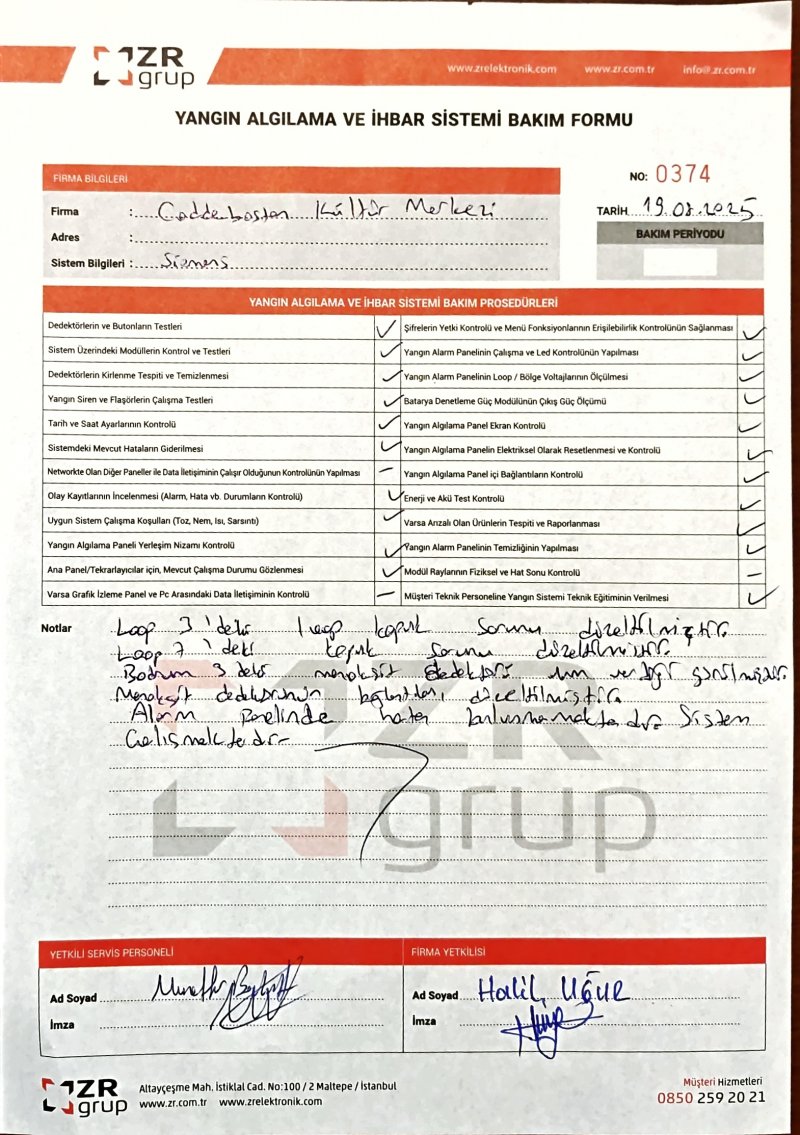 ZR
grup
www.zrelektronik.com www.zr.com.tr info@.zr.com.tr
YANGIN ALGILAMA VE İHBAR SİSTEMİ BAKIM FORMU
FİRMA BİLGİLERİ
NO: 0374
Firma : Caddebostan Kültür Merkezi
TARİH 19.08.2025
Adres :
BAKIM PERİYODU
Sistem Bilgileri : Siemens
YANGIN ALGILAMA VE İHBAR SİSTEMİ BAKIM PROSEDÜRLERİ
Dedektörlerin ve Butonların Testleri ✓ Şifrelerin Yetki Kontrolü ve Menü Fonksiyonlarının Erişilebilirlik Kontrolünün Sağlanması ✓
Sistem Üzerindeki Modüllerin Kontrol ve Testleri ✓ Yangın Alarm Panelinin Çalışma ve Led Kontrolünün Yapılması ✓
Dedektörlerin Kirlenme Tespiti ve Temizlenmesi ✓ Yangın Alarm Panelinin Loop / Bölge Voltajlarının Ölçülmesi ✓
Yangın Siren ve Flaşörlerin Çalışma Testleri ✓ Batarya Denetleme Güç Modülünün Çıkış Güç Ölçümü ✓
Tarih ve Saat Ayarlarının Kontrolü ✓ Yangın Algılama Panel Ekran Kontrolü ✓
Sistemdeki Mevcut Hataların Giderilmesi ✓ Yangın Algılama Panelin Elektriksel Olarak Resetlenmesi ve Kontrolü ✓
Networkte Olan Diğer Paneller ile Data İletişiminin Çalışır Olduğunun Kontrolünün Yapılması – Yangın Algılama Panel içi Bağlantıların Kontrolü ✓
Olay Kayıtlarının İncelenmesi (Alarm, Hata vb. Durumların Kontrolü) ✓ Enerji ve Akü Test Kontrolü ✓
Uygun Sistem Çalışma Koşulları (Toz, Nem, Isı, Sarsıntı) ✓ Varsa Arızalı Olan Ürünlerin Tespiti ve Raporlanması ✓
Yangın Algılama Paneli Yerleşim Nizamı Kontrolü ✓ Yangın Alarm Panelinin Temizliğinin Yapılması ✓
Ana Panel/Tekrarlayıcılar için, Mevcut Çalışma Durumu Gözlenmesi ✓ Modül Raylarının Fiziksel ve Hat Sonu Kontrolü –
Varsa Grafik İzleme Panel ve Pc Arasındaki Data İletişiminin Kontrolü – Müşteri Teknik Personeline Yangın Sistemi Teknik Eğitiminin Verilmesi ✓
Notlar Loop 3 'deki loop kopuk sorunu düzeltilmiştir.
Loop 7 'deki kopuk sorunu düzeltilmiştir.
Bodrum 3 deki monoksit dedektörü verdiği görülmüştür.
Monoksit dedektörünün bağlantıları düzeltilmiştir.
Alarm Panelinde hata bulunmamaktadır Sistem
Çalışmaktadır-
ZR
grup
YETKİLİ SERVİS PERSONELİ FİRMA YETKİLİSİ
Ad Soyad Ad Soyad Halil UĞUR
İmza İmza
ZR
grup
Altayçeşme Mah. İstiklal Cad. No:100 / 2 Maltepe / İstanbul
www.zr.com.tr www.zrelektronik.com
Müşteri Hizmetleri
0850 259 20 21